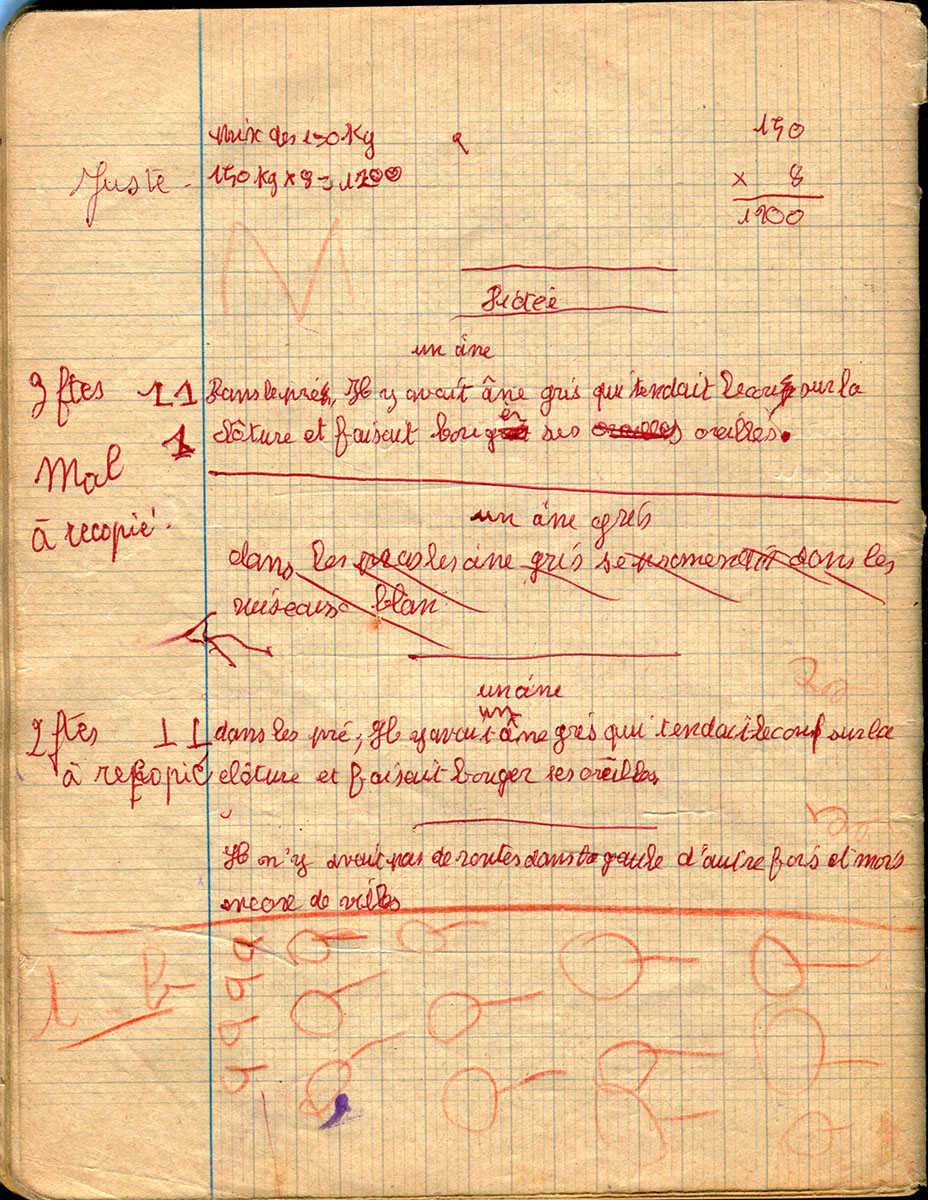 prix des 150 Kg
150
Juste. 150 kg x 8 = 1200
x 8
1200
Dictée
un âne
3 ftes 1 1 Dans le prés, Il y avait âne gris qui tendait le cou sur la
1 clôture et faisait bouger ses oreilles.
Mal
à recopié.
un âne gris
dans les prés les âne gris se promenait dans les
ruiseaux blan
un âne
un
2 ftes 1 1 dans les pré, Il y avait âne gris qui tendait le cou sur la
à recopié clôture et faisait bouger ses oreilles
Il n'y avait pas de routes dans la gaule d'autre fois et mois
encore de villes